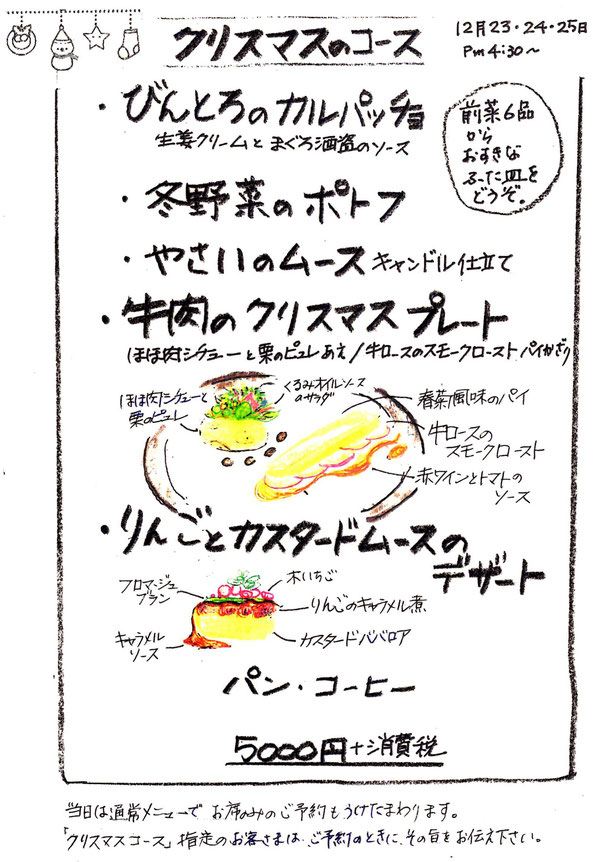 クリスマスのコース
12月23・24・25日
Pm 4:30～
・びんとろのカルパッチョ
生姜クリームとまぐろ酒盗のソース
前菜6品
から
おすきな
ふた皿を
どうぞ。
・冬野菜のポトフ
・やさいのムース キャンドル仕立て
・牛肉のクリスマスプレート
ほほ肉シチューと栗のピュレあえ/牛ロースのスモークローストパイかざり
ほほ肉シチューと
栗のピュレ
くるみオイルソース
のサラダ
春菊風味のパイ
牛ロースの
スモークロースト
赤ワインとトマトの
ソース
・りんごとカスタードムースの
デザート
フロマージュ
ブラン
木いちご
りんごのキャラメル煮
キャラメル
ソース
カスタードババロア
パン・コーヒー
5000円+消費税
当日は通常メニューで お席のみのご予約もうけたまわります。
「クリスマスコース」指定のお客さまは、ご予約のときに、その旨をお伝え下さい。